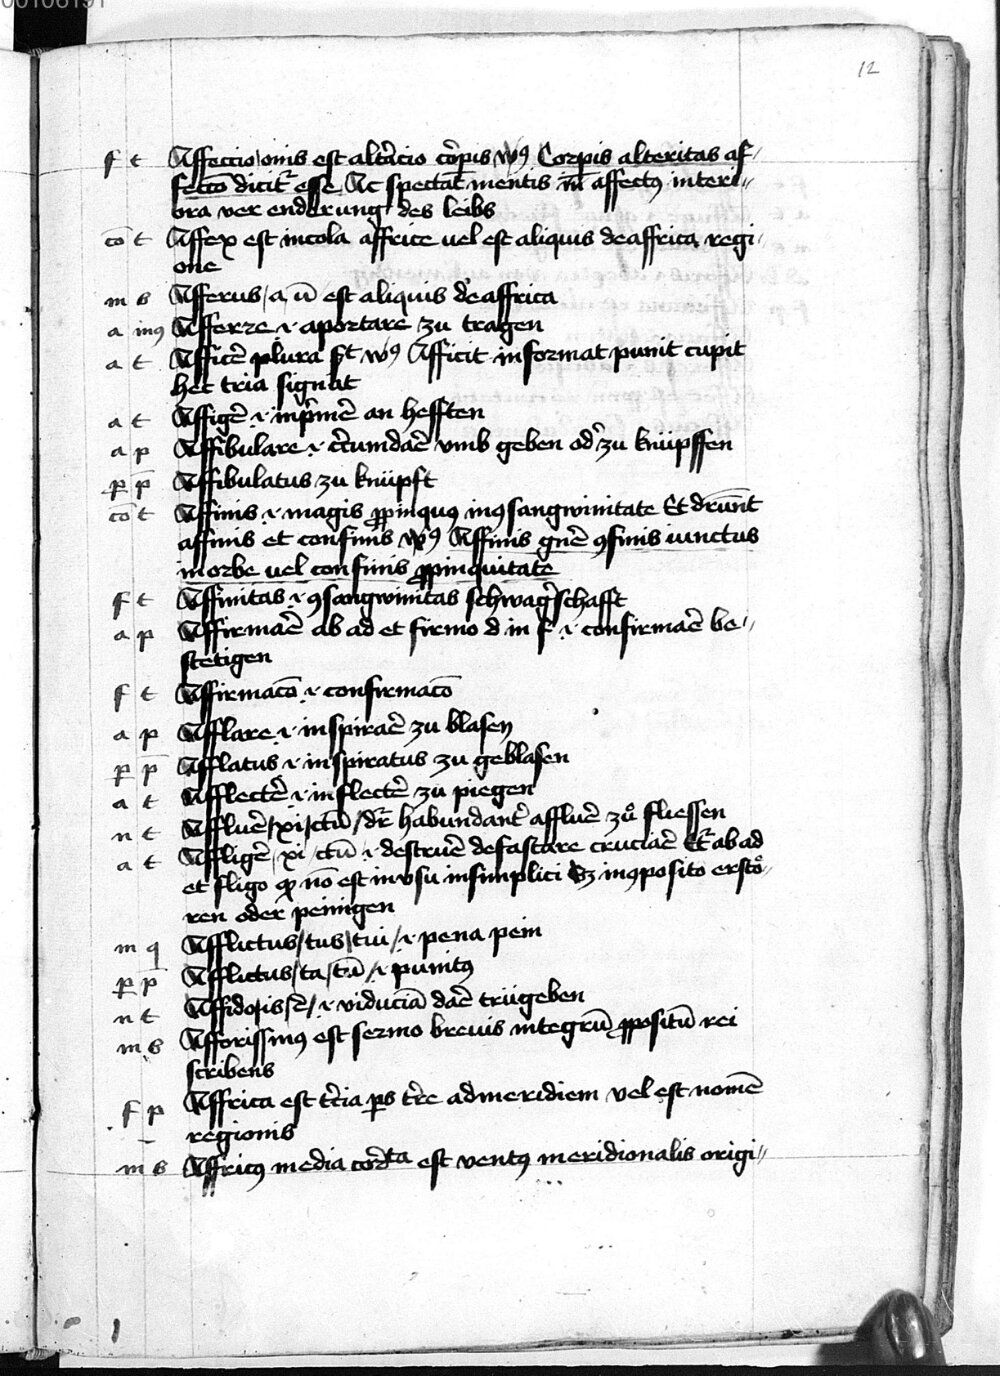 12
f t Affeccio onis est altacio corpis vꝰ Corpis alteritas af〃
fecto dicitr esse Ac spectat mentis affectꝰ interi〃
ora ver enderung des leibs
cō t Affex est incola affrice vel est aliquis de affrica regi〃
one
m s Afferus / a ū est aliquis de affrica
a Afferre .i. aportare zu tragen
a t Afficē plura st vꝰ Afficit informat punit cupit
hec tria signat
a t Affigē .i. inprimē an hefften
a p Affibulare .i. circumdaē vmb geben od zu knüpffen
p p̄ Affibulatus zu knüpft
cō t Affinis .i. magis ꝓpinquꝰ in ꝯsangwinitate Et drūnt
affinis et confinis vꝰ Affinis gnē ꝯfinis iunctus
in orbe vel confinis ꝓpinquitate
f t Affinitas .i. ꝯsangwinitas schwagschafft
a p Affirmaē ab ad et firmo d in f .i. confirmaē be〃
stetigen
f t Affirmacō .i. confirmacō
a p Afflare .i. inspiraē zu blasen
p p̄ Afflatus .i. inspiratus zu geblasen
a t Afflectē .i. inflectē zu piegen
n t Affluē / xi / ctū / dr habundant affluē zuͦ fliessen
a t Affligē / xi / ctū .i. destruē defastare cruciaē Et ab ad
et fligo qͦ nō est in vsu in simplici sꝫ in ꝯposito erstoͤ〃
ren oder peinigen
m q Afflictus / tus / tui / .i. pena pein
p p̄ Afflictus / ta / tū / .i. punitꝰ
n t Affido / is / ē / .i. viduciā daē trügeben
m s Afforissimꝰ est sermo brevis integrū ꝓpositū rei
scribens
f p Affrica est tcia ps tre ad meridiem vel est nomē
regionis
m s Affricꝰ media corta est ventꝰ meridionalis origi〃